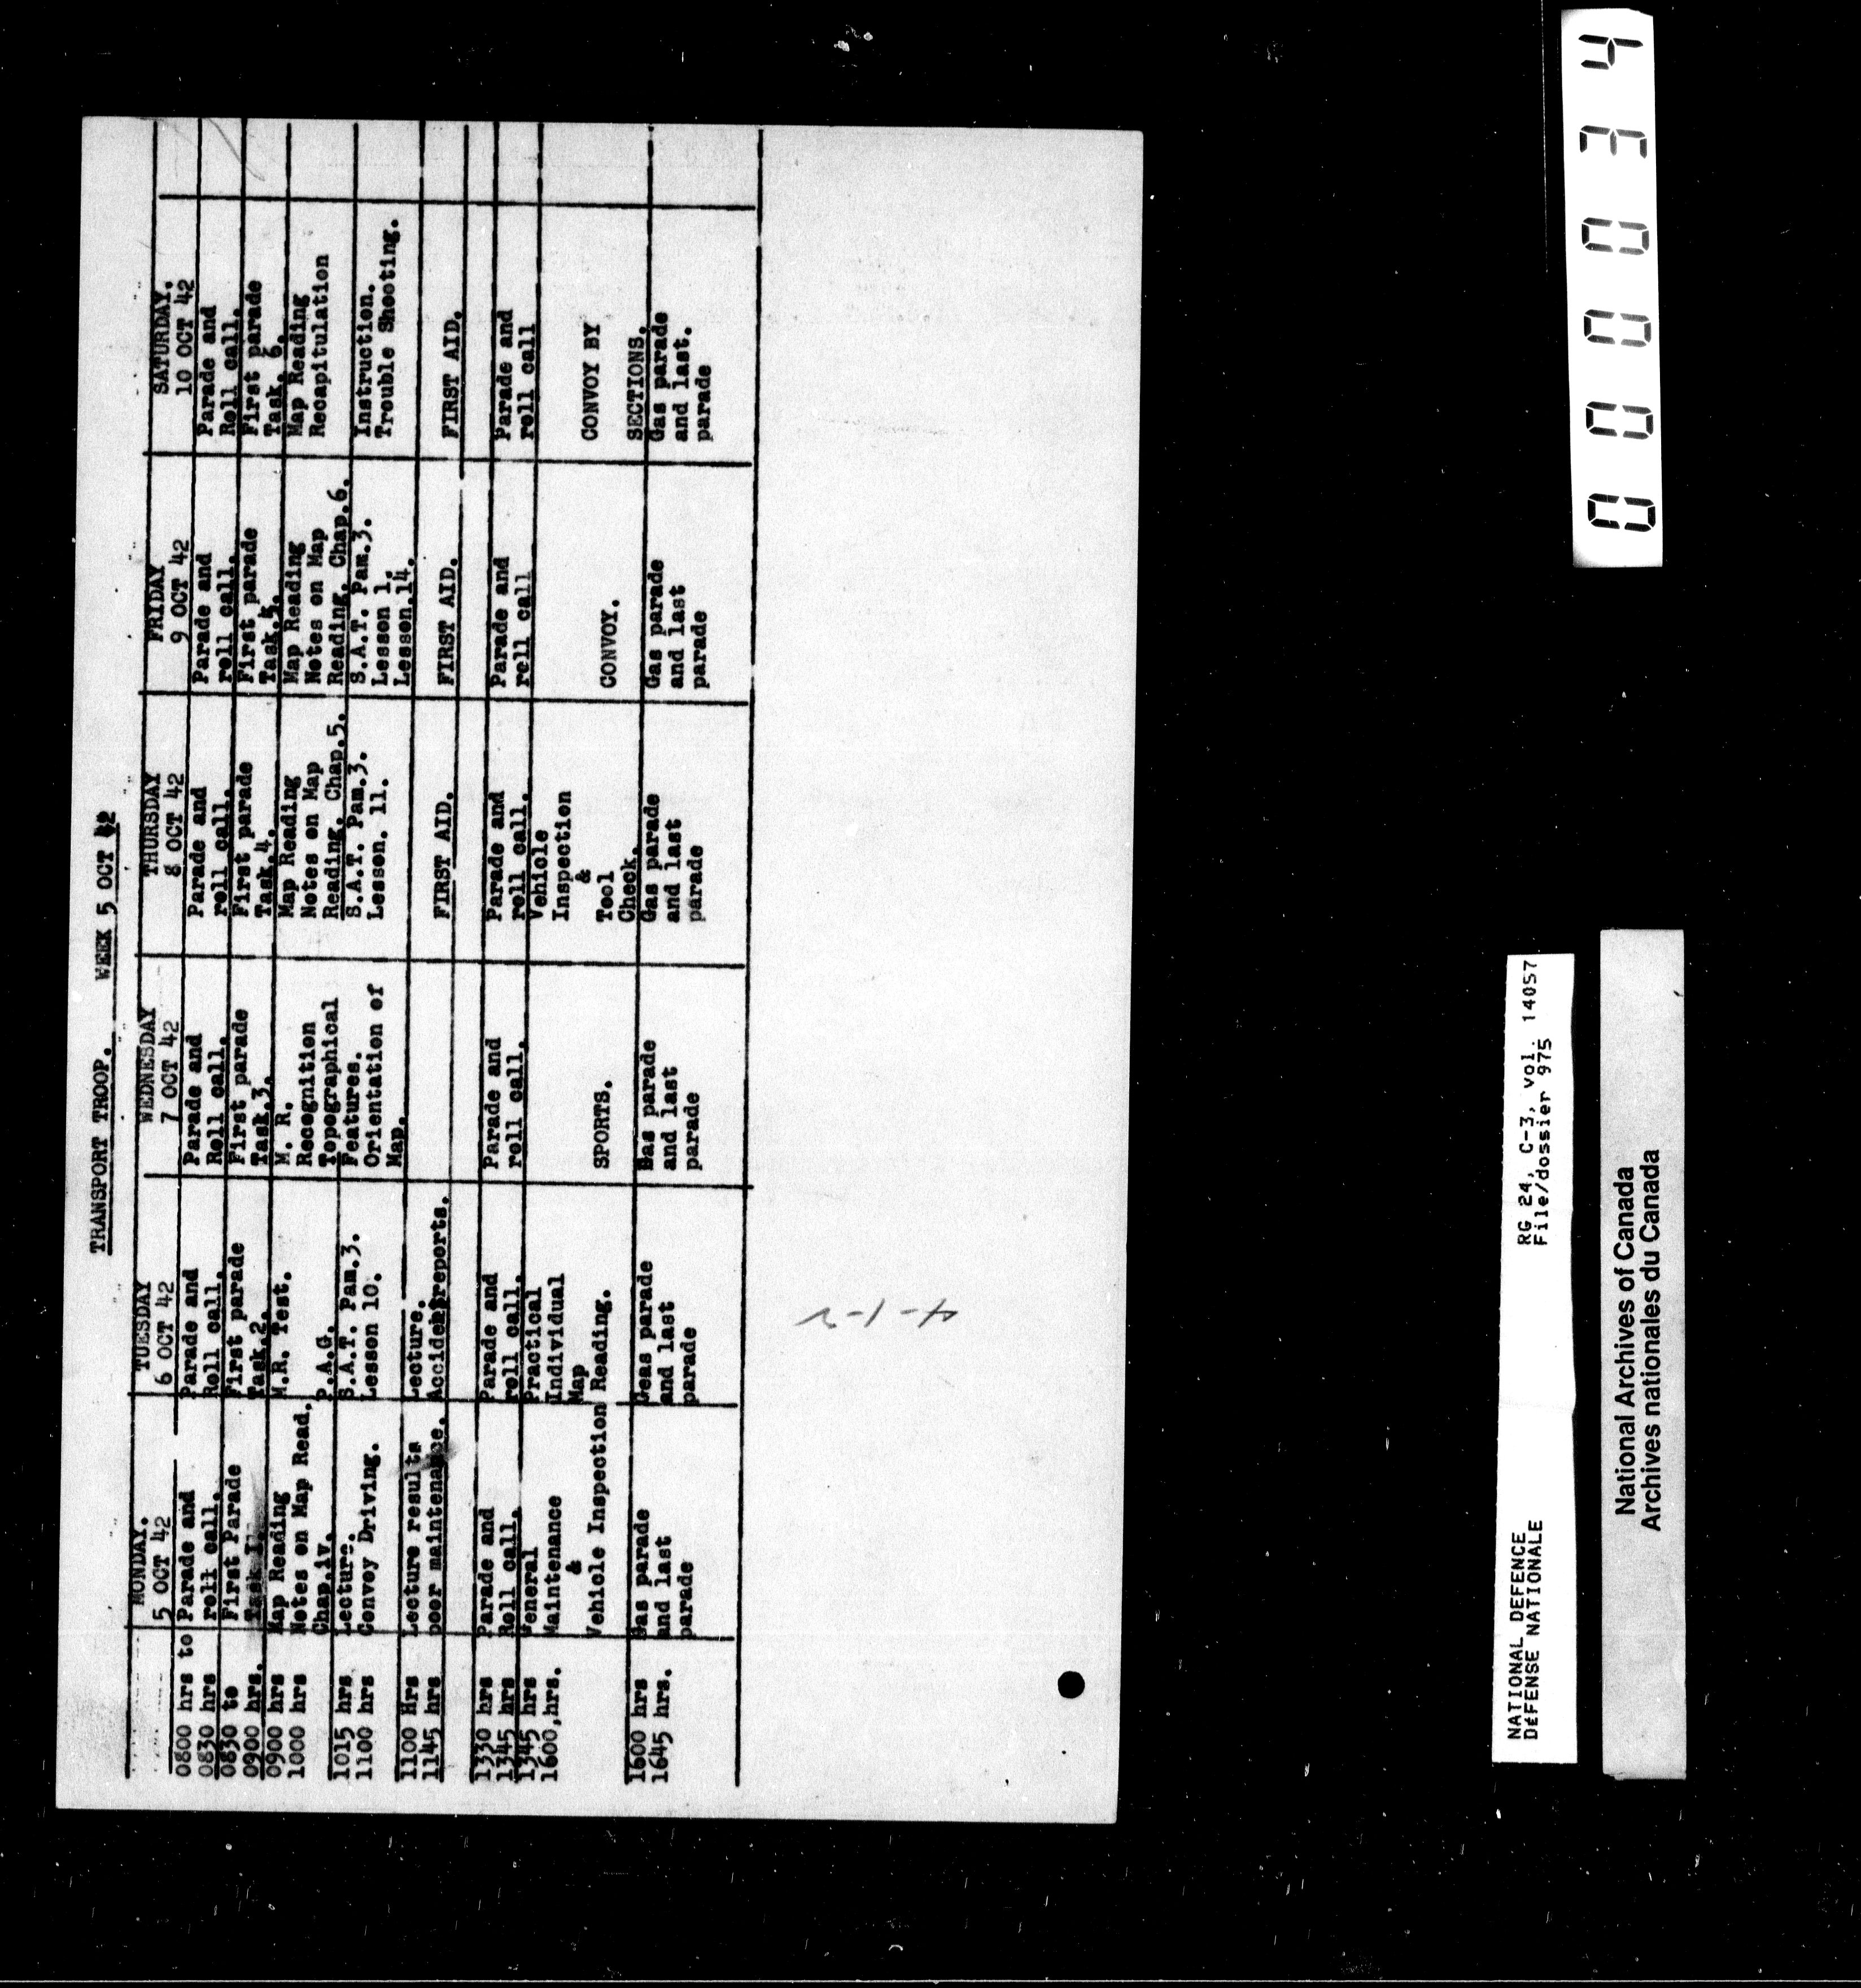 TRANSPORT TROOP. WEEK 5 OCT 42
MONDAY. TUESDAY WEDNESDAY THURSDAY FRIDAY SATURDAY.
5 OCT 42 6 OCT 42 7 OCT 42 8 OCT 42 9 OCT 42 10 OCT 42
0800 hrs to Parade and Parade and Parade and Parade and Parade and Parade and
0830 hrs roll call. Roll call. Roll call. roll call. roll call. Roll call.
0830 to First Parade First parade First parade First parade First parade First parade
0900 hrs. Task 1. Task.2. Task.3. Task.4. Task.5. Task. 6.
0900 hrs Map Reading M.R. Test. M. R. Map Reading Map Reading Map Reading
1000 hrs Notes on Map Read. Recognition Notes on Map Notes on Map Recapitulation
Chap.iv. P.A.G. Topographical Reading. Chap.5. Reading. Chap.6.
1015 hrs Lecture. S.A.T. Pam.3. Features. S.A.T. Pam.3. S.A.T. Pam.3. Instruction.
1100 hrs Convoy Driving. Lesson 10. Orientation of Lesson. 11. Lesson 1. Trouble Shooting.
Map. Lesson.14.
1100 Hrs Lecture results Lecture.
1145 hrs poor maintenance. Accident reports. FIRST AID. FIRST AID. FIRST AID.
1330 hrs Parade and Parade and Parade and Parade and Parade and Parade and
1345 hrs Roll call. roll call. roll call. roll call. roll call roll call
1345 hrs General Practical Vehicle
1600,hrs. Maintenance Individual Inspection
& Map & CONVOY BY
Vehicle Inspection Reading. SPORTS. Tool CONVOY.
Check. SECTIONS.
1600 hrs Gas parade Geas parade Gas parade Gas parade Gas parade Gas parade
1645 hrs. and last and last and last and last and last and last.
parade parade parade parade parade parade
4-1-2
000034
NATIONAL DEFENCE RG 24, C-3, vol. 14057
DÉFENSE NATIONALE File/dossier 975
National Archives of Canada
Archives nationales du Canada